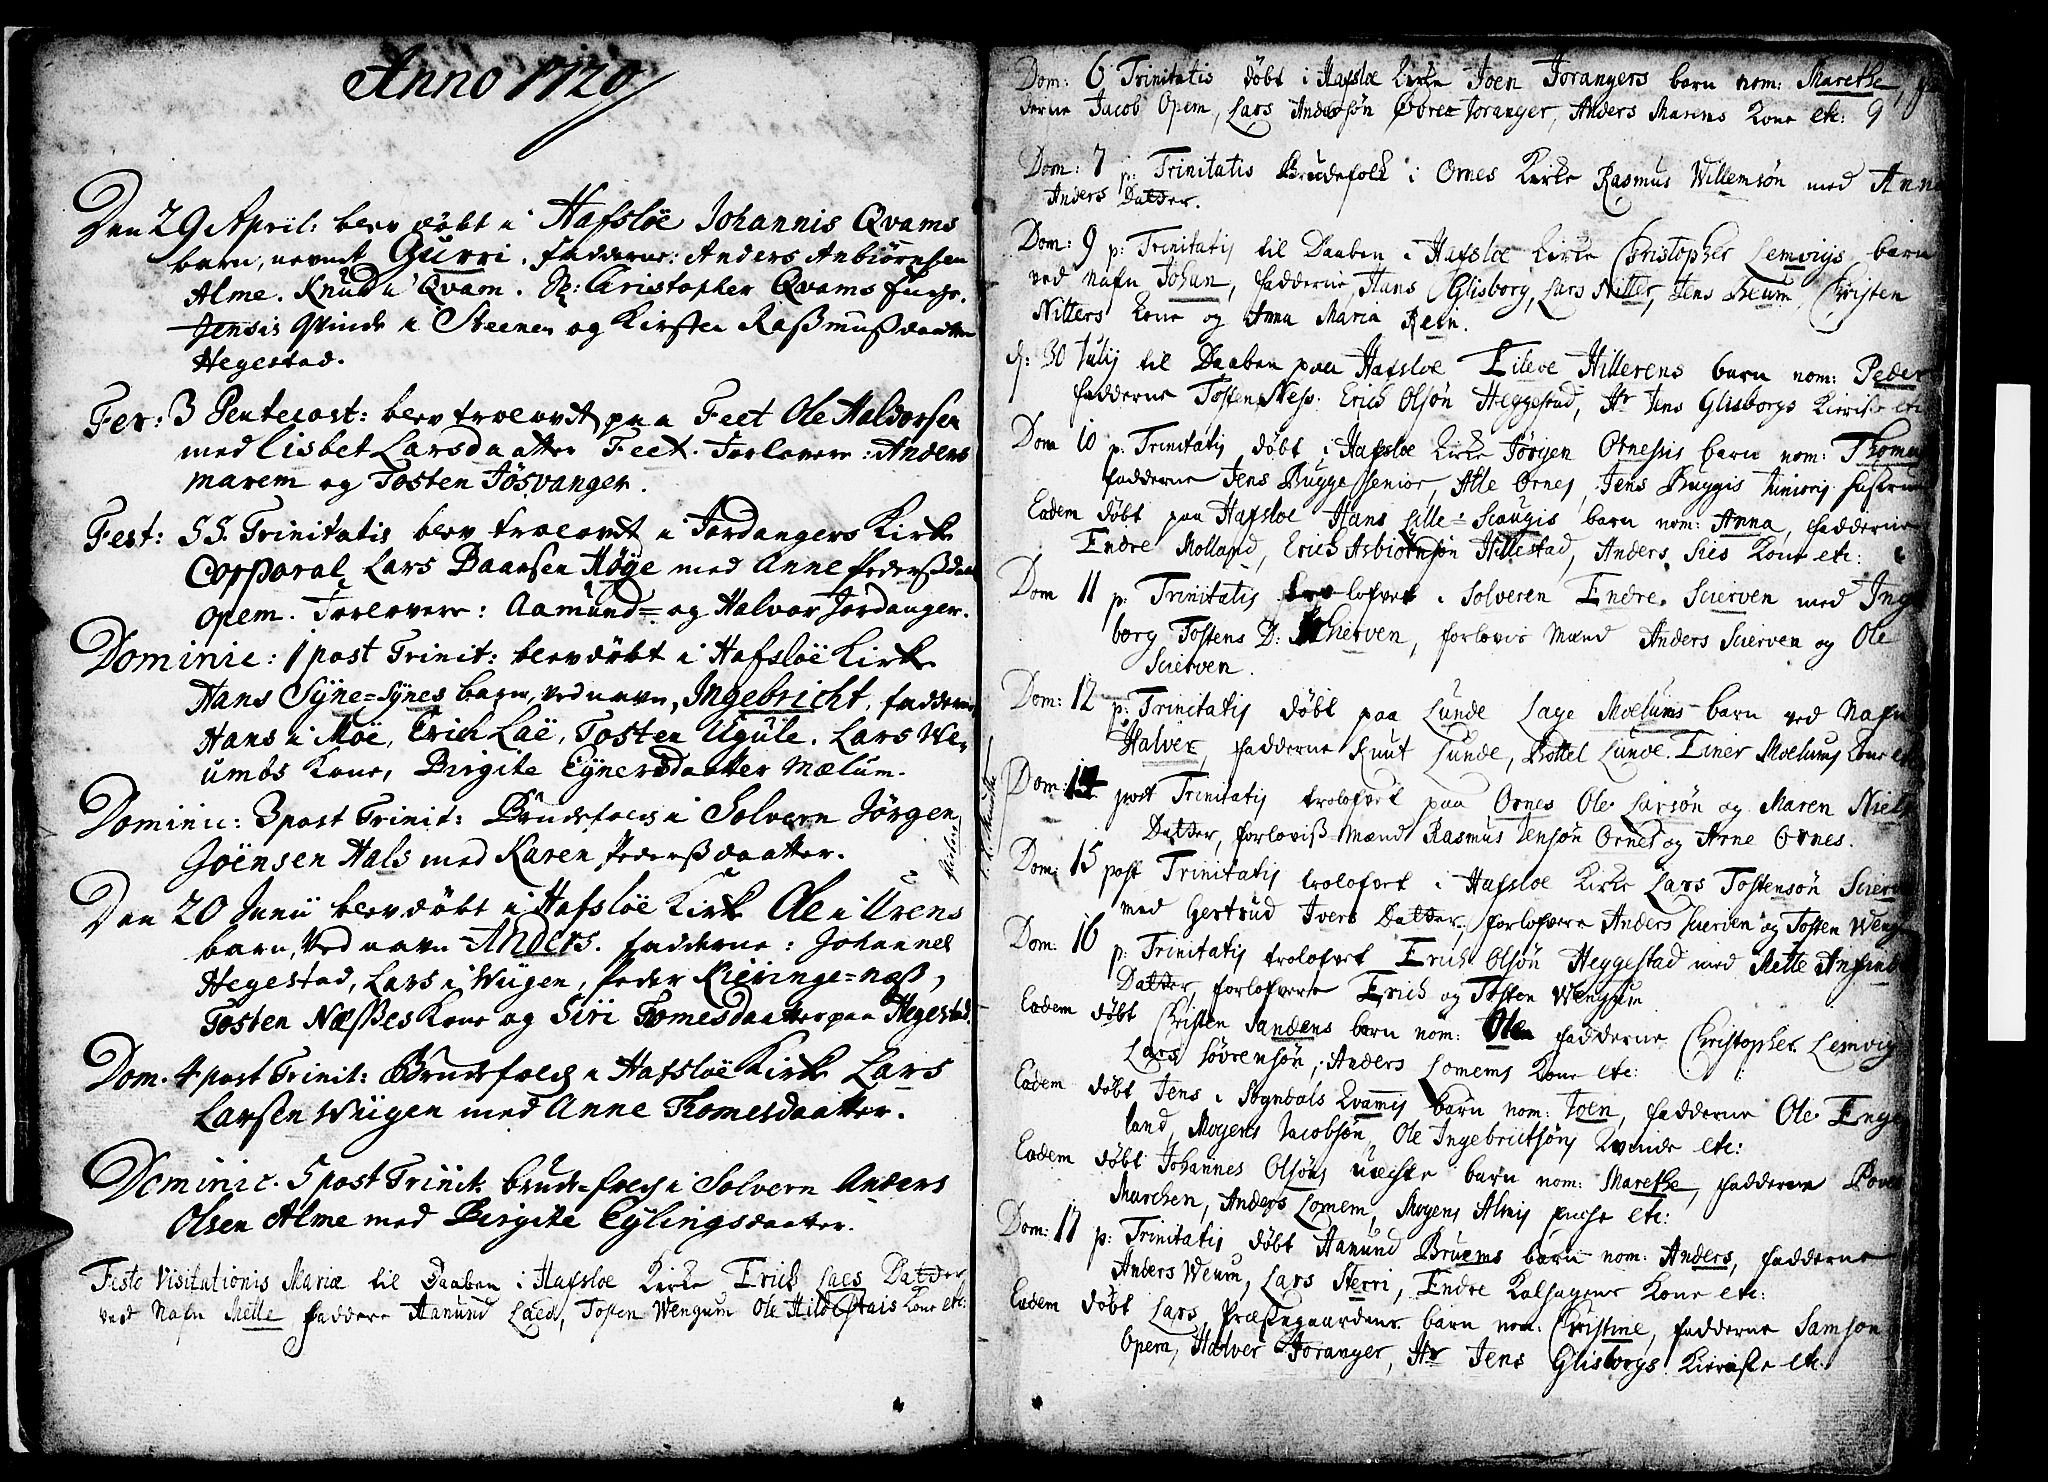 Anno 1720
Den 29 April: blev døbt i Hafsløe Johannis Qvams
barn, nevnt Gurri. Fadderne: Anders Anbiørnsen
Alme. Knud i Qvam. Christopher Qvams
Jensis Qvinde i Steenen og Kirsten Rasmusdaatter
Hegestad.
Fer: 3 Pentecost: blev troelovt paa Feet Ole Haldorsen
med Lisbet Larsdaatter Feet. Forlovere: Anders
marem og Tosten Jøsvanger.
Fest: SS. Trinitatis blev troelovt i Jordangers Kirke
Corporal Lars Baarsen Høye med Anne Pedersdaatter
Opem. Forlovere: Aamund= og Halvor Jordanger.
Dominic: 1 post Trinit: blev døbt i Hafsløe Kirke
Hans Syne=Synes barn, ved navn, Ingebricht, fadderne
Hans i Moe, Erich Lae, Tosten Ugule. Lars We-
umbs Kone, Birgite Eynersdaatter Mælum.
Dominic: 3 post Trinit: Brudefolch i Solvern Jørgen
Joensen Hals med Karen Pedersdaatter.
Den 20 Junii blev døbt i Hafsløe Kirke Ole i Urens
barn, ved navn Anders. fadderne: Johannes
Hegestad, Lars i Wiigen, Peder Kieringe=næss,
Tosten Næsses Kone og Siri Tomesdaatter paa Hegestad.
Dom. 4 post Trinit: Brudefolch i Hafsløe Kirke Lars
Larsen Wiigen med Anne Thomesdaatter.
Dominic. 5 post Trinit. brudefolch i Solvern Anders
Olsen Alme med Birgite Eylingsdaatter.
Festo Visitationis Mariæ til Daaben i Hafsloe Kirke Erich Laes Datter,
ved Nafn Mette Faddere Aamund Laed, Tosten Wengum Ole Hildestais Kone etc:
Dom: 6 Trinitatis døbt i Hafsloe Kirke Joen Jorangers barn nom: Marethe,
derne Jacob Opem, Lars Andersøn Øvre Joranger, Anders Marems Kone etc: 9
Dom: 7 p: Trinitatis Brudefolk i Ornes Kirke Rasmus Willemsøn med Anna
Anders Datter.
Dom: 9 p: Trinitatis til Daaben i Hafsloe Kirke Christopher Lemvigs barn
ved Nafn Johan, Fadderne, Hans Glisborg, Lars Nitter, Jens Christen
Nitters Kone og Anna Maria Rein.
d: 30 Julij til Daaben paa Hafsloe Eileve Hillerens barn nom: Peder
Fadderne Tosten Ness. Erich Olsøn Heggestad, Hr Jens Glisborgs Kieriste etc
Dom 10 p. Trinitatis døbt i Hafsloe Kirke Jørgen Ornesis barn nom: Thomas
fadderne Jens Bugge Senior, Atle Ornes, Jens Buggis Junioris
Eodem døbt paa Hafsloe Hans Lille=Scougis barn nom: Anna, Fadderne
Endre Molland, Erich Asbiørnsøn Hillestad, Anders Sies Kone etc:
Dom 11 p: Trinitatis trolofvet i Solveren Endre Scierven med Inge
borg Tostens D: Schierven, forlovis Mænd Anders Scierven og Ole
Scierven.
Dom: 12 p: Trinitatis døbt paa Lunde Lage Moelums barn ved Nafn
Halver, fadderne Knut Lunde, Bottel Lunde. Einer Moelums Kone etc
Dom: 14 post Trinitatis trolofvet paa Ornes Ole Larsøn og Maren Niels
Datter, forloviss-Mænd Rasmus Jensøn Ornes og Arne Ornes.
Dom: 15 post Trinitatis trolofvet i Hafsloe Kirke Lars Tostensøn Scierven
med Gertrud Ivers Datter, forlofvere Anders Scierven og Tosten Wengum
Dom. 16 p: Trinitatis trolofvet Erich Olsøn Heggestad med Mette Anfinds
Datter, forlofvere Erich og Tosten Wengum
Eadem døbt Christen Sandens barn nom: Ole, Fadderne Christopher Lemvig
Lars Søvrensøn, Anders Lomems Kone etc:
Eadem døbt Jens i Sogndals Qvamis barn nom: Joen, fadderne Ole Enge
land, Mogens Jacobsøn, Ole Ingebrictsøns Kvinde etc:
Eadem døbt Johannes Olsøns uechte barn nom: Marethe, fadderne
Murchen, Anders Lomem, Mogens Almis etc:
Dom: 17 p: Trinitatis døbt Aamund Bruems barn nom: Anders, fadderne
Anders Weum, Lars Sterri, Endre Kalhagens Kone etc:
Eadem døbt Lars Præstegaardens barn nom: Christine, fadderne Samson
Opem, Halver Joranger, Hr Jens Glisborgs Kieriste etc.